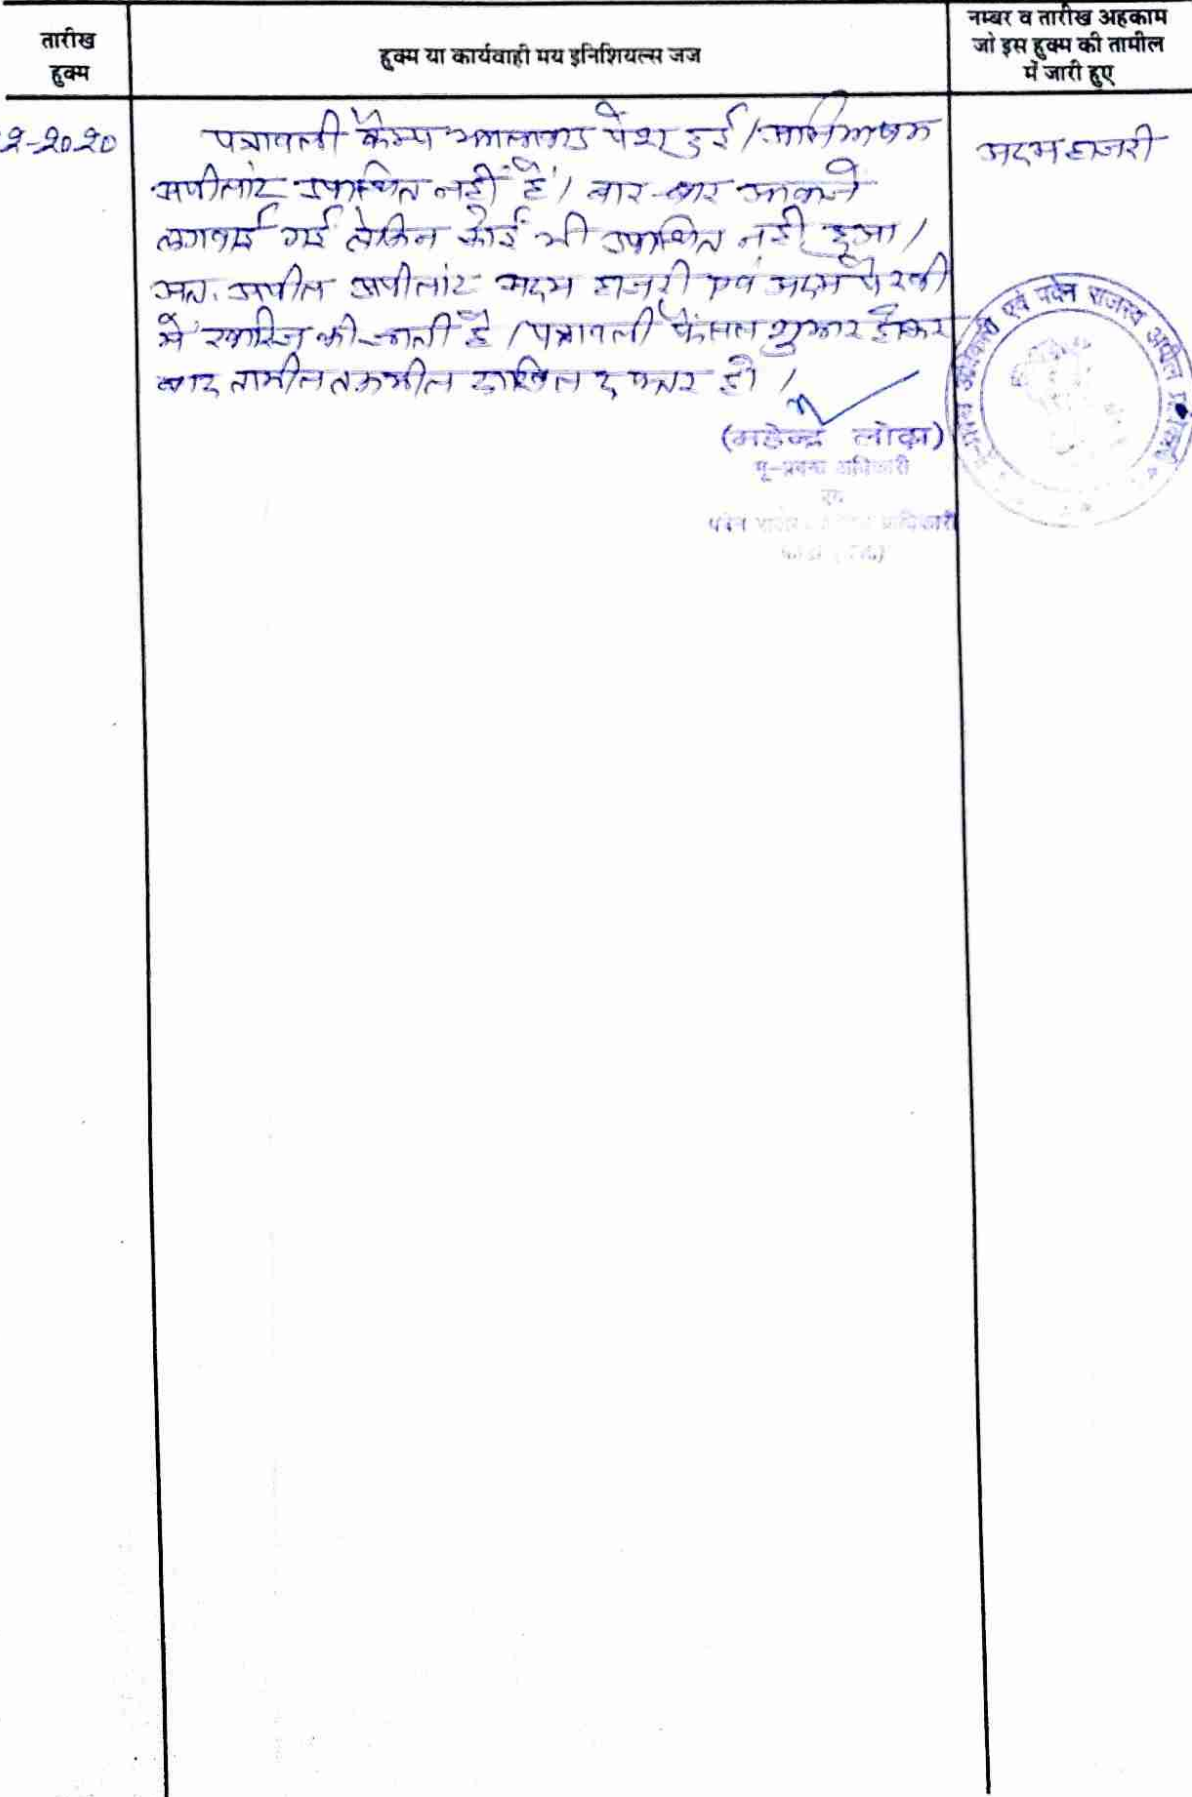 तारीख
हुक्म
हुक्म या कार्यवाही मय इनिशियल्स जज
नम्बर व तारीख अहकाम
जो इस हुक्म की तामील
में जारी हुए
2-2020
पत्रावली कैम्प झालावाड पेश हुई। अभिभाषक
अपीलांट उपस्थित नहीं है। बार-बार आवाजे
लगवाई गई लेकिन कोई भी उपस्थित नहीं हुआ।
अत. अपील अपीलांट अदम हाजरी एवं अदम पैरवी
में खारिज की जाती है। पत्रावली फैसल शुमार होकर
बाद तामील तकमील दाखिल दफ्तर हो।
अदम हाजरी
(महेन्द्र लोढा)
भू-प्रबन्ध अधिकारी
एवं
पदेन प्राधिकारी
एवं पदेन राजस्व अपील